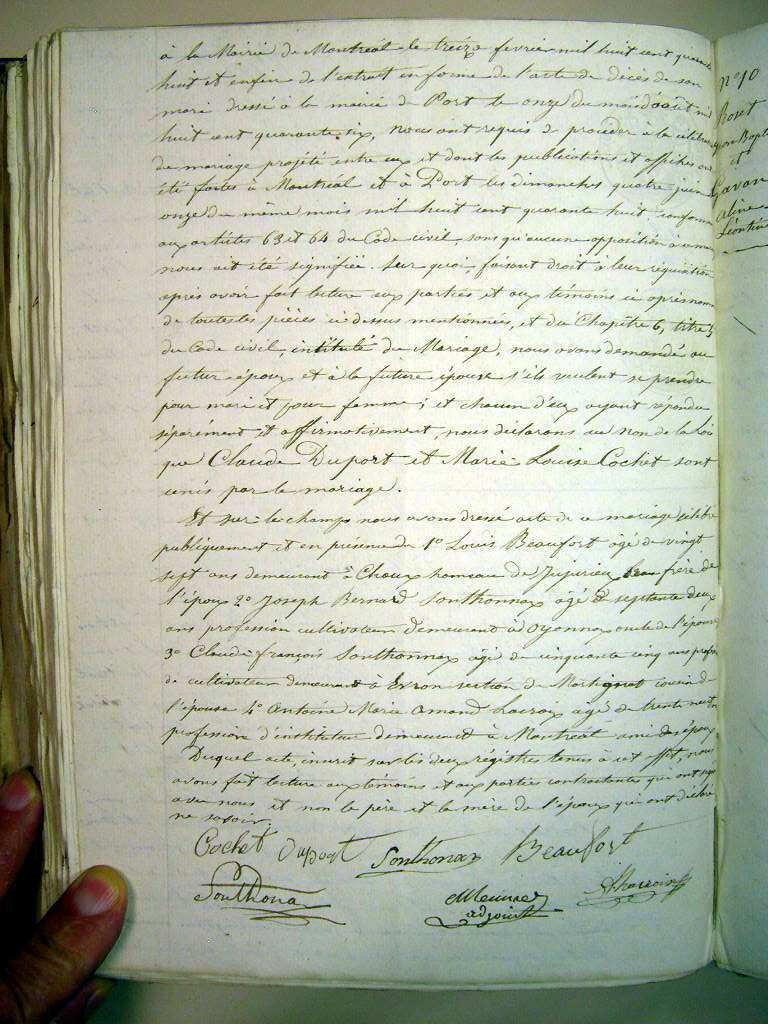 à la Mairie de Montréal le treize fevrier mil huit cent quarante
huit et enfin de l'extrait en forme de l'acte de décès de son
mari dressé à la mairie de Port le onze du mois d'août mil
huit cent quarante six, nous ont requis de procéder à la célébration
de mariage projeté entre eux et dont les publications et affiches ont
été faites à Montréal et à Port les dimanches quatre juin et
onze du même mois mil huit cent quarante huit conformé
aux articles 63 et 64 du Code civil, sans qu'aucune opposition à
nous ait été signifiée. Sur quoi, faisant droit à leur réquisition
après avoir fait lecture aux parties et aux témoins ci après nommés
de toutes les pièces ci dessus mentionnées, et du Chapitre 6, titre 5
du Code civil, intitulé du Mariage, nous avons demandé au
futur époux et à la future épouse s'ils veulent se prendre
pour mari et pour femme; et chacun d'eux ayant répondu
séparément et affirmativement, nous déclarons au nom de la loi
que Claude Duport et Marie Louise Cochet sont
unis par le mariage.
Et sur le champ nous avons dressé acte de ce mariage célébré
publiquement et en présence de 1° Louis Beaufort âgé de vingt
sept ans demeurant à Chaux hameau de Jujurieu, beau frère de
l'époux 2° Joseph Bernard Sonthonnax âgé de septante deux
ans profession cultivateur demeurant à Oyonnax oncle de l'épouse
3° Claude françois Sonthonnax âgé de cinquante cinq ans profess
de cultivateur demeurant à Evron section de Martignat cousin de
l'épouse 4° Antoine Marie Amand Lacroix âgé de trente neuf
profession d'instituteur demeurant à Montréal ami des époux
Duquel acte, inscrit sur les deux régistres tenus à cet effet, nous
avons fait lecture aux témoins et aux parties contractantes qui ont signé
avec nous, et non le père et la mère de l'époux qui ont déclaré
ne savoir.
Cochet Duport Sonthonax Beaufort
Sonthona adjoint
N° 10
Rozet
Jean Bapt
et
Gavan
Aline
Léontine